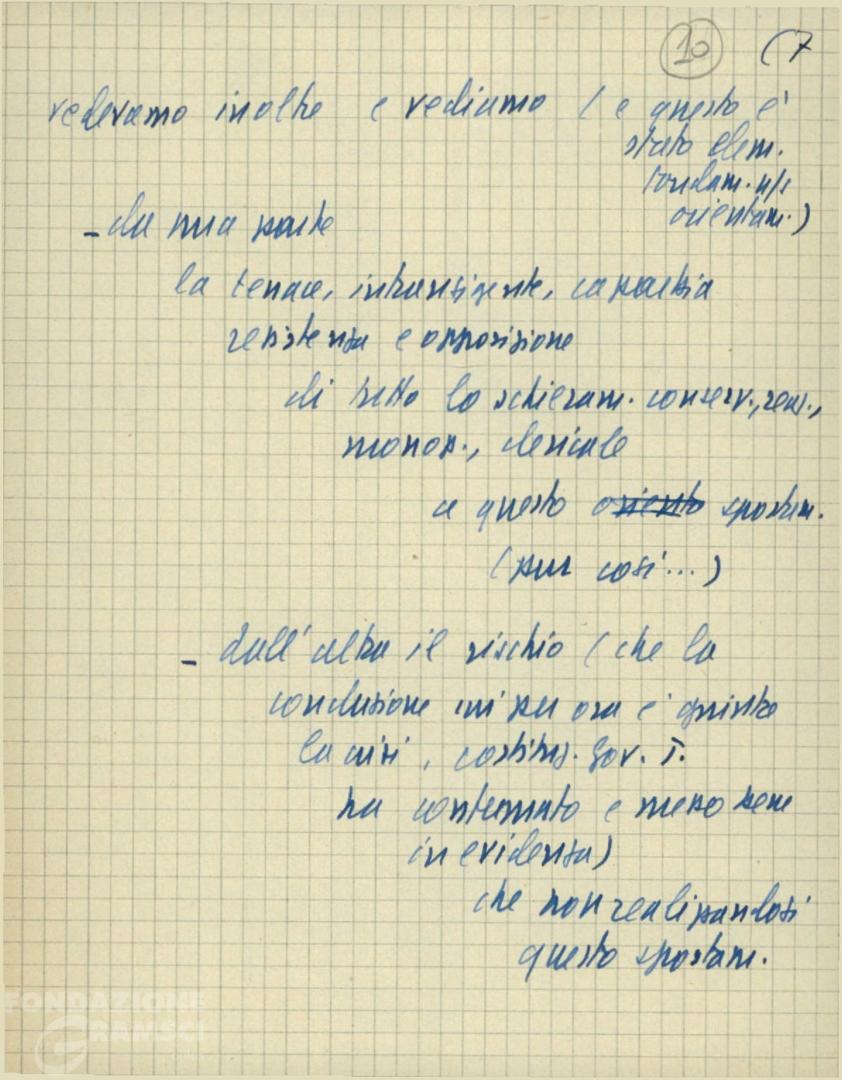 10 (7
vedevamo inoltre e vediamo (e questo è
stato elem.
fondam. n/s
orientam.)
- da una parte
la tenace, intransigente, caparbia
resistenza e opposizione
di tutto lo schieram. conserv., reaz.,
monop., clericale
a questo oriento spostam.
(pur così...)
- dall'altra il rischio (che la
conclusione cui per ora è giunta
la crisi, costituz. gov. T.
ha confermato e messo bene
in evidenza)
che non realizzandosi
questo spostam.
FONDAZIONE
GRAMSCI